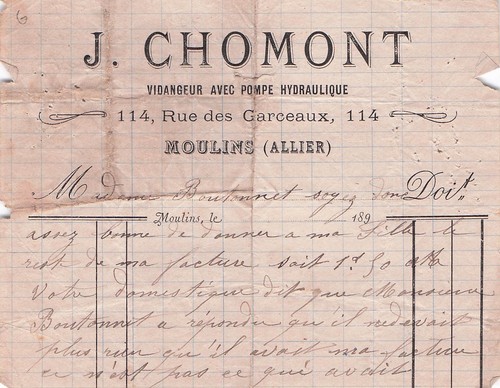 J. CHOMONT
VIDANGEUR AVEC POMPE HYDRAULIQUE
114, Rue des Garceaux, 114
MOULINS (ALLIER)
Madame Boutonnet soyez donc Doit
Moulins, le 189
assez bonne de donner a ma fille le
rest de ma facture soit 1f 50
Votre domestique dit que Monsieur
Boutonnet a répondu qu'il ne devait
plus rien qu'il avait ma facture
ce n'est pas ce que avait